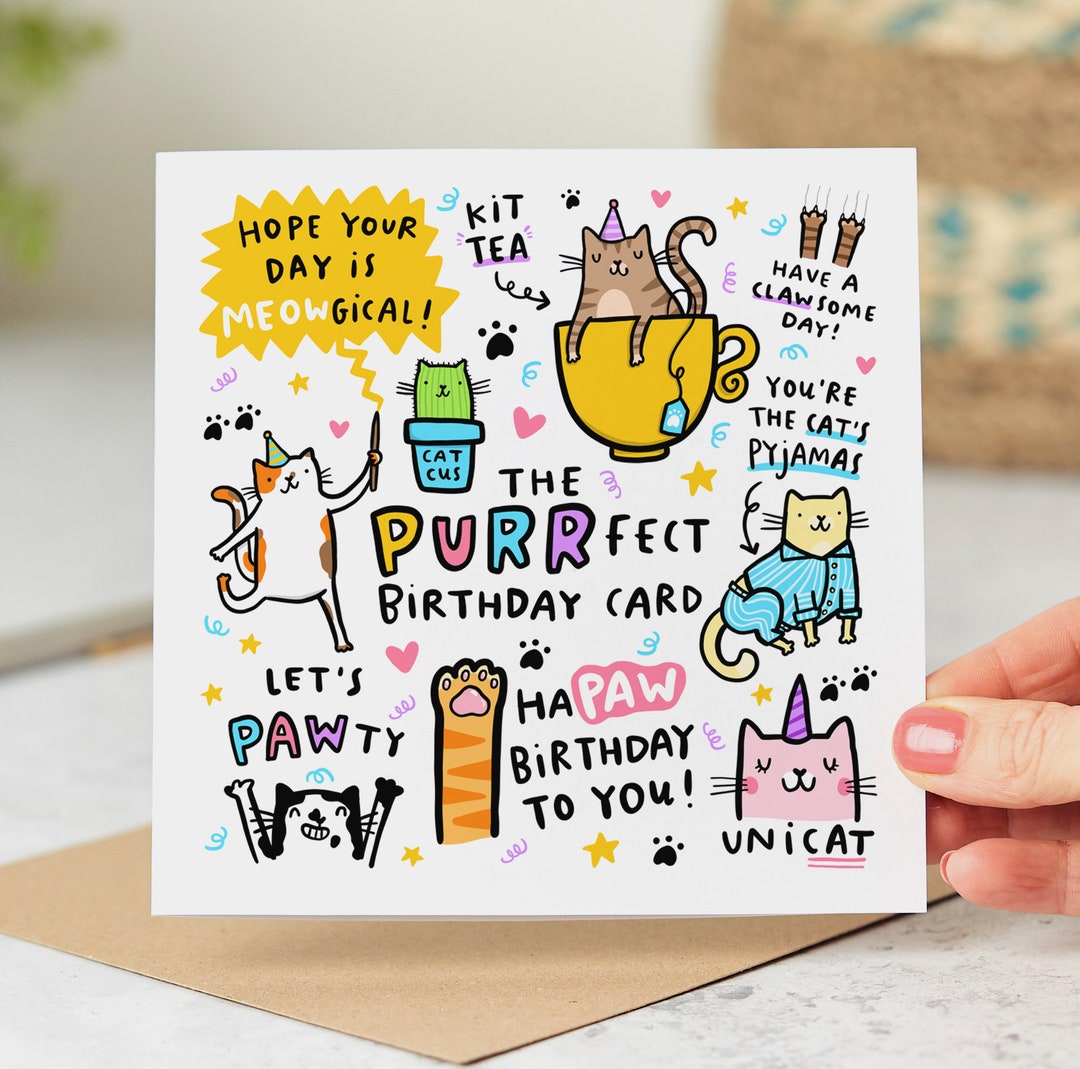 HOPE YOUR
DAY iS
MEOWGiCAL!
KiT
TEA
HAVE A
CLAWSOME
DAY!
YOU'RE
THE CAT'S
PYJAMAS
CAT
CUS
THE
PURRFECT
BiRTHDAY CARD
LET'S
PAWTY
HAPAW
BiRTHDAY
TO YOU!
UNiCAT